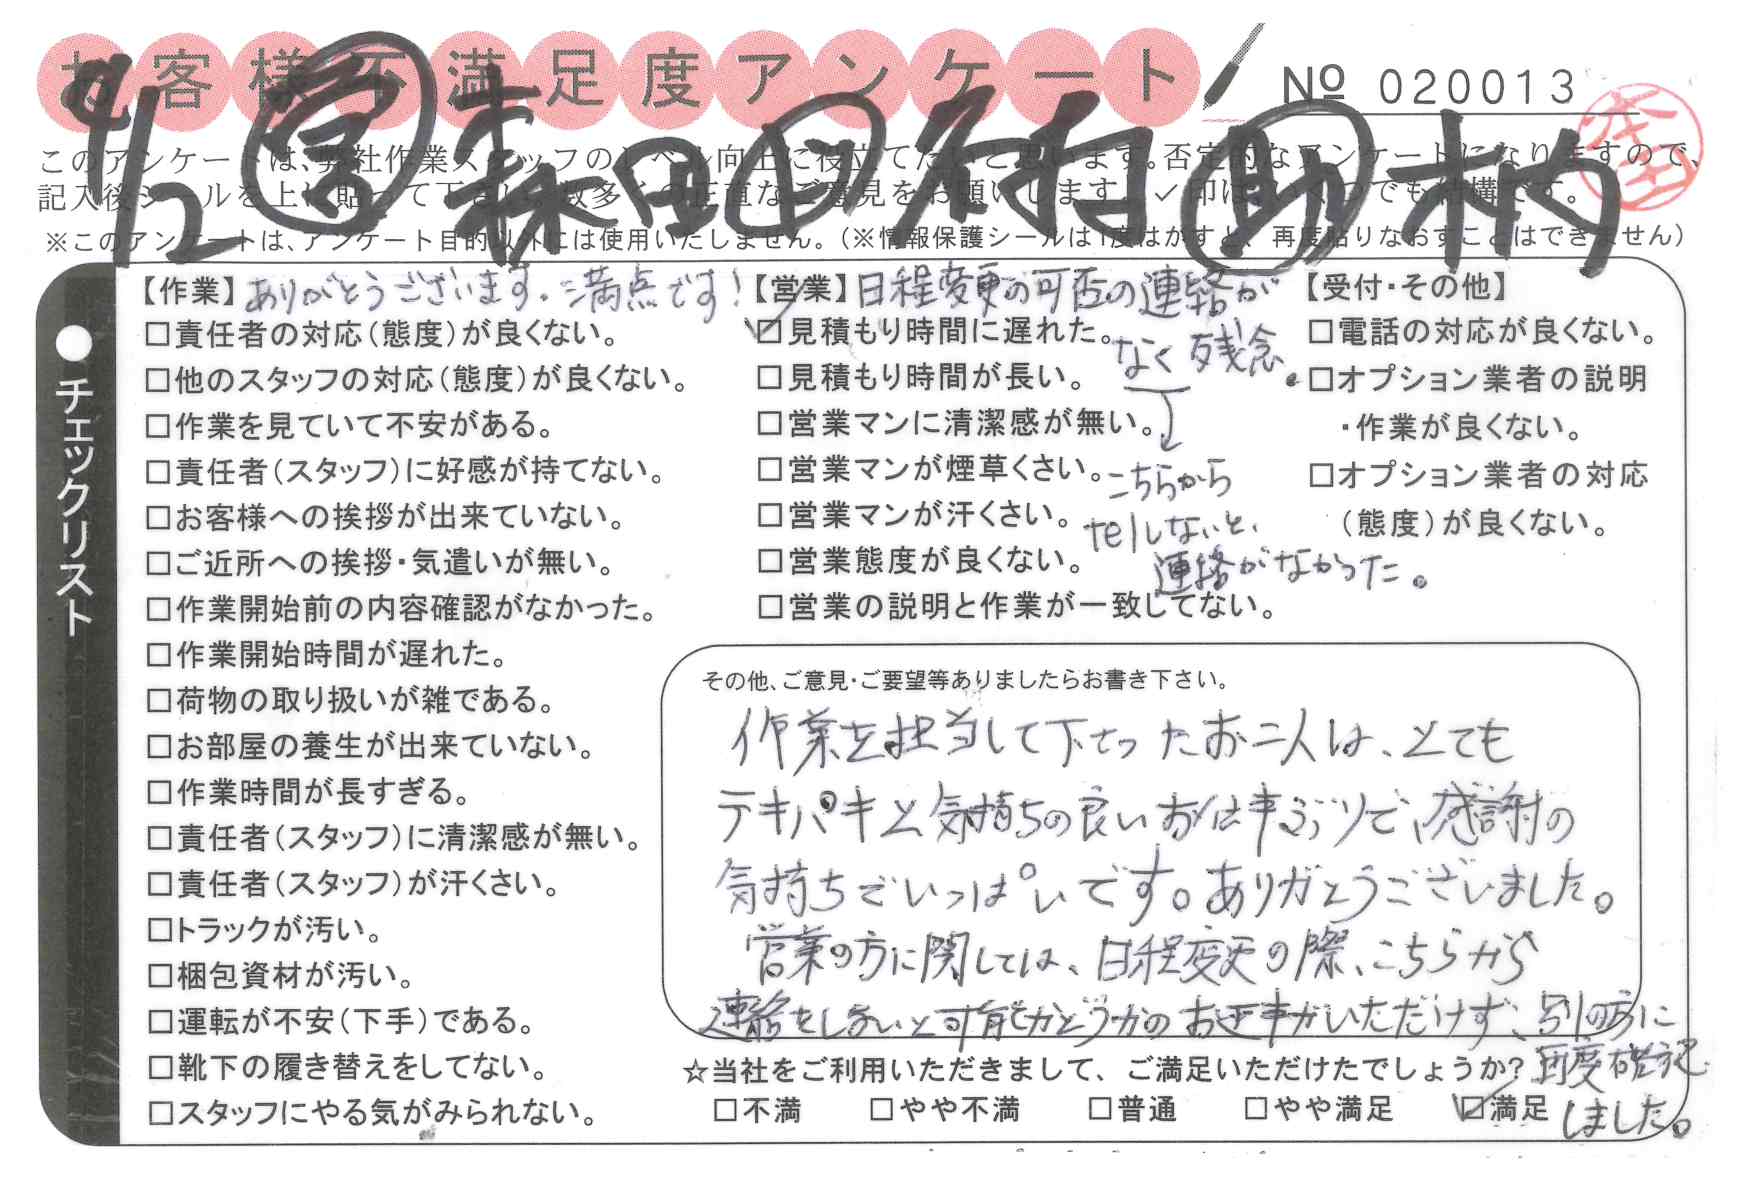 お客様不満足度アンケート
№ 020013
4/2 ㊢ 森田 ㊞
このアンケートは、弊社作業スタッフのレベル向上に役立てたいと思います。否定的なアンケートになりますので、
記入後シールを上に貼って下さい。数多くの正直なご意見をお願いします。✓印は、いくつでも結構です。
※このアンケートは、アンケート目的以外には使用いたしません。(※情報保護シールは1度はがすと、再度貼りなおすことはできません)
●チェックリスト
【作業】ありがとうございます。満点です!
□責任者の対応(態度)が良くない。
□他のスタッフの対応(態度)が良くない。
□作業を見ていて不安がある。
□責任者(スタッフ)に好感が持てない。
□お客様への挨拶が出来ていない。
□ご近所への挨拶・気遣いが無い。
□作業開始前の内容確認がなかった。
□作業開始時間が遅れた。
□荷物の取り扱いが雑である。
□お部屋の養生が出来ていない。
□作業時間が長すぎる。
□責任者(スタッフ)に清潔感が無い。
□責任者(スタッフ)が汗くさい。
□トラックが汚い。
□梱包資材が汚い。
□運転が不安(下手)である。
□靴下の履き替えをしてない。
□スタッフにやる気がみられない。
【営業】日程変更の可否の連絡が
なく残念。
↓
こちらから
telしないと、
連絡がなかった。
☑見積もり時間に遅れた。
□見積もり時間が長い。
□営業マンに清潔感が無い。
□営業マンが煙草くさい。
□営業マンが汗くさい。
□営業態度が良くない。
□営業の説明と作業が一致してない。
【受付・その他】
□電話の対応が良くない。
□オプション業者の説明
・作業が良くない。
□オプション業者の対応
(態度)が良くない。
その他、ご意見・ご要望等ありましたらお書き下さい。
作業を担当して下さったお二人は、とても
テキパキと気持ちの良いお仕事ぶりで、感謝の
気持ちでいっぱいです。ありがとうございました。
営業の方に関しては、日程変更の際、こちらから
連絡をしないと可能かどうかのお返事がいただけず、別の方に
再度確認
しました。
☆当社をご利用いただきまして、ご満足いただけたでしょうか?
□不満 □やや不満 □普通 □やや満足 ☑満足